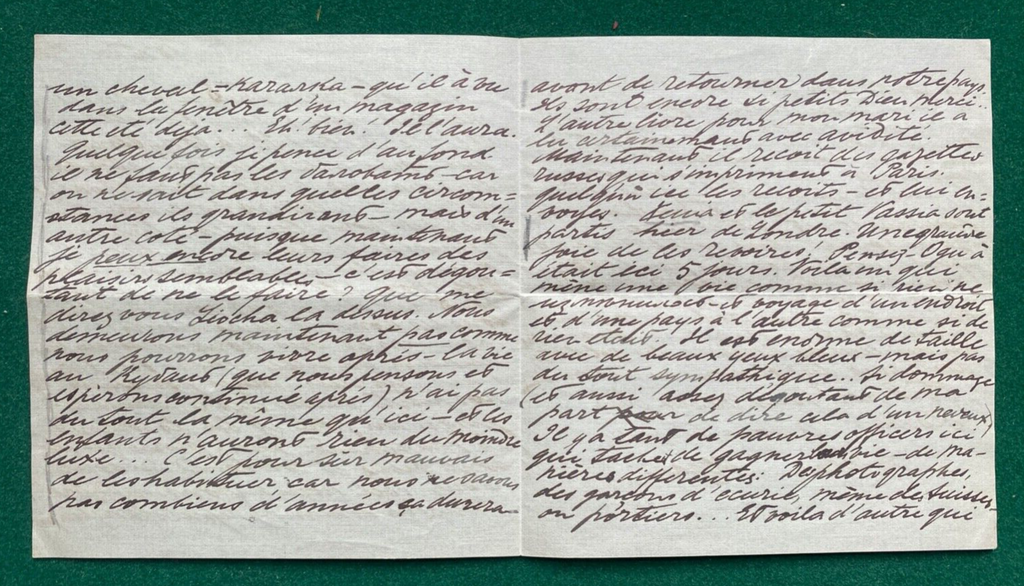 un cheval – Kararka – qu'il à vu
dans la fenêtre d'un magazin
cette été deja... Eh. bien. Il l'aura.
Quelque fois je pence d'au fond
il ne faut pas les car
on ne sait dans quelles circom-
stances ils grandirant – mais d'un
autre coté – puisque maintenant
je peux encore leurs faires des
plaisirs semblables – c'est degou-
tant de ne le faire? Que me
direz vous Liocha la dessus. Nous
demeurons maintenant pas comme
nous pourrons vivre après – la vie
au (que nous pensons et
espirons continue après) n'ai pas
du tout la même qu'ici – et les
enfants n'auront rien du moindre
luxe... C'est pour sûr mauvais
de les habituer car nous ne savons
pas combiens d'années ça durera
avant de retourner dans notre pays.
Ils sont encore si petits Dieu merci..
L'autre livre pour mon mari il a
lu certainement avec avidité.
Maintenant il recoit des gazettes
russes qui s'impriment à Paris.
quelqu'un ici les recoits – et lui en-
voyes. Xenia et le petit Vassia sont
partis hier de Londre. Une grande
joie de les revoires! Pensez – O qu à
était ici 5 jours. Voila un qui
mène une vie comme si rien ne
– et voyage d'un endroit
et d'une pays à l'autre comme si de
rien était. Il est enorme de taille
avec de beaux yeux bleux – mais pas
du tout sympathique.. Si dommage
(et aussi assez degoutant de ma
part de dire cela d'un neveux)
Il y a tant de pauvres officers ici
qui taches de gagner vie – de ma-
nières differentes. De photographes,
des garçons d'ecurie, même de suisses
ou portiers... Et voila d'autre qui